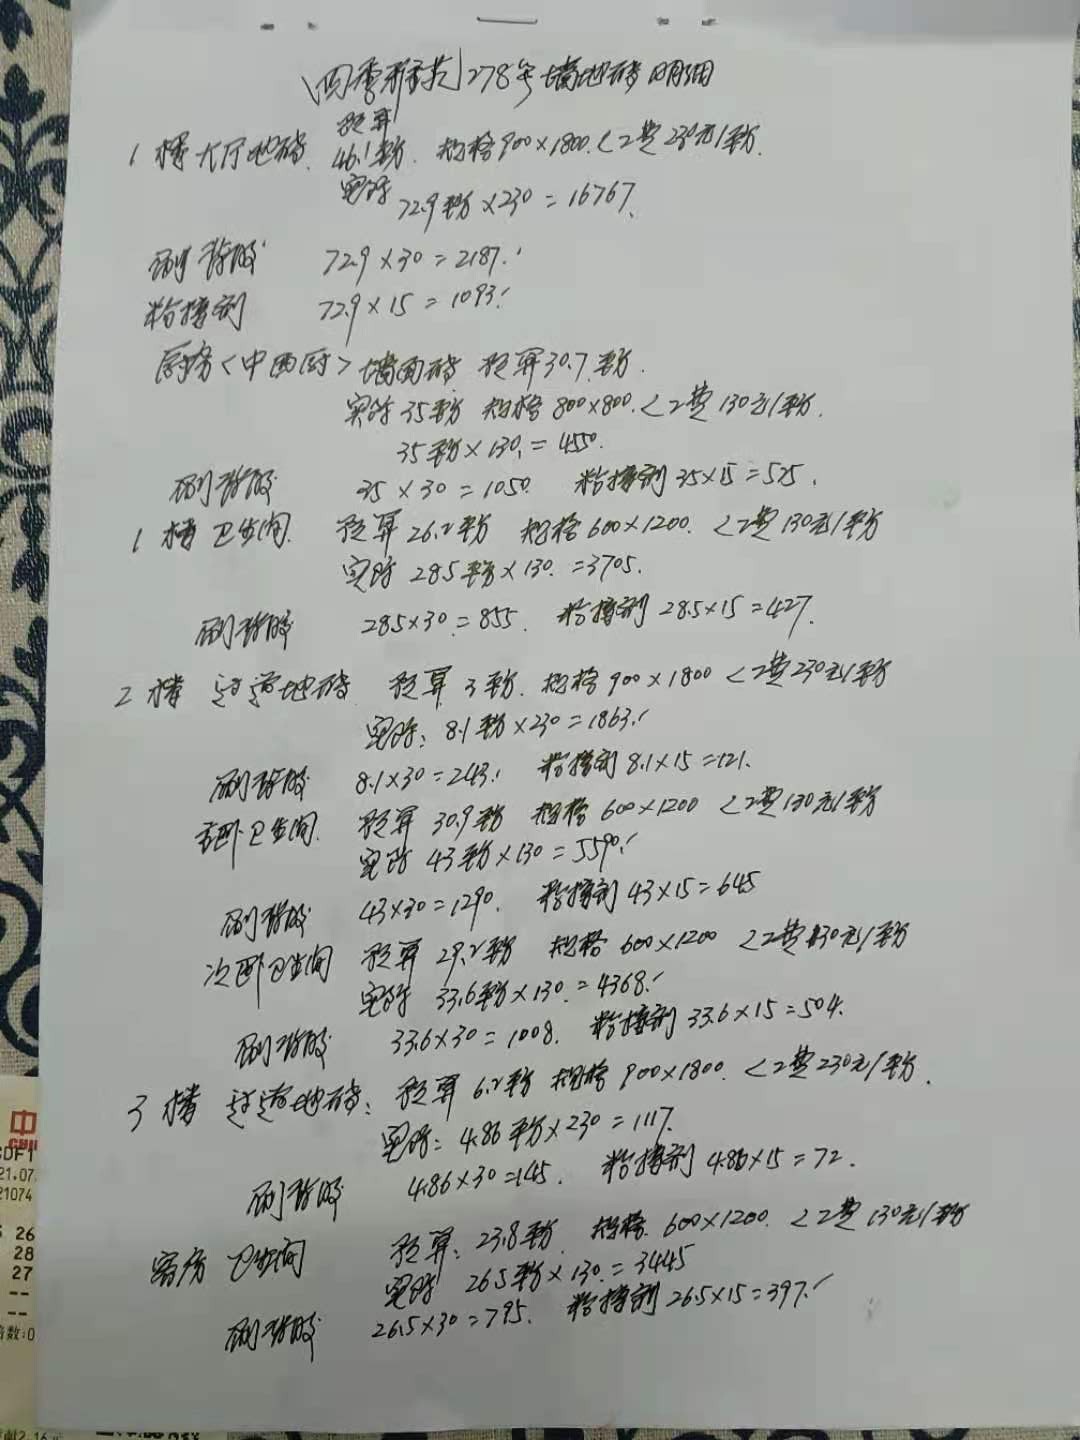 四季雅苑278号墙地砖明细
1楼大厅地砖. 预算46.1平方. 规格900×1800.<工费230元/平方.
实际 72.9平方×230=16767.
刷背胶 72.9×30=2187.
粘搏剂 72.9×15=1093.
厨房<中西厨>墙面砖 预算30.7平方.
实际35平方 规格800×800.<工费130元/平方.
35平方×130.=4550.
刷背胶 35×30=1050. 粘搏剂35×15=525.
1楼卫生间. 预算26.2平方 规格600×1200.<工费130元/平方
实际 28.5平方×130.=3705.
刷背胶 28.5×30.=855. 粘搏剂28.5×15=427.
2楼 过道地砖 预算3平方. 规格900×1800<工费230元/平方
实际: 8.1平方×230=1863.
刷背胶 8.1×30=243. 粘搏剂8.1×15=121.
主卧卫生间. 预算30.9平方 规格600×1200<工费130元/平方
实际43平方×130=5590.
刷背胶 43×30=1290. 粘搏剂43×15=645
次卧卫生间 预算29.2平方 规格600×1200<工费130元/平方
实际 33.6平方×130.=4368.
刷背胶 33.6×30=1008. 粘搏剂33.6×15=504.
3楼 过道地砖: 预算6.2平方 规格900×1800.<工费230元/平方.
实际: 4.86平方×230=1117.
刷背胶 4.86×30=145. 粘搏剂4.86×15=72.
客房卫生间 预算: 23.8平方. 规格.600×1200.<工费130元/平方
实际 26.5平方×130.=3445
刷背胶 26.5×30=795. 粘搏剂26.5×15=397.
中
CDF1
21.07
21074
26
28
27
--
--
数:0
2.16